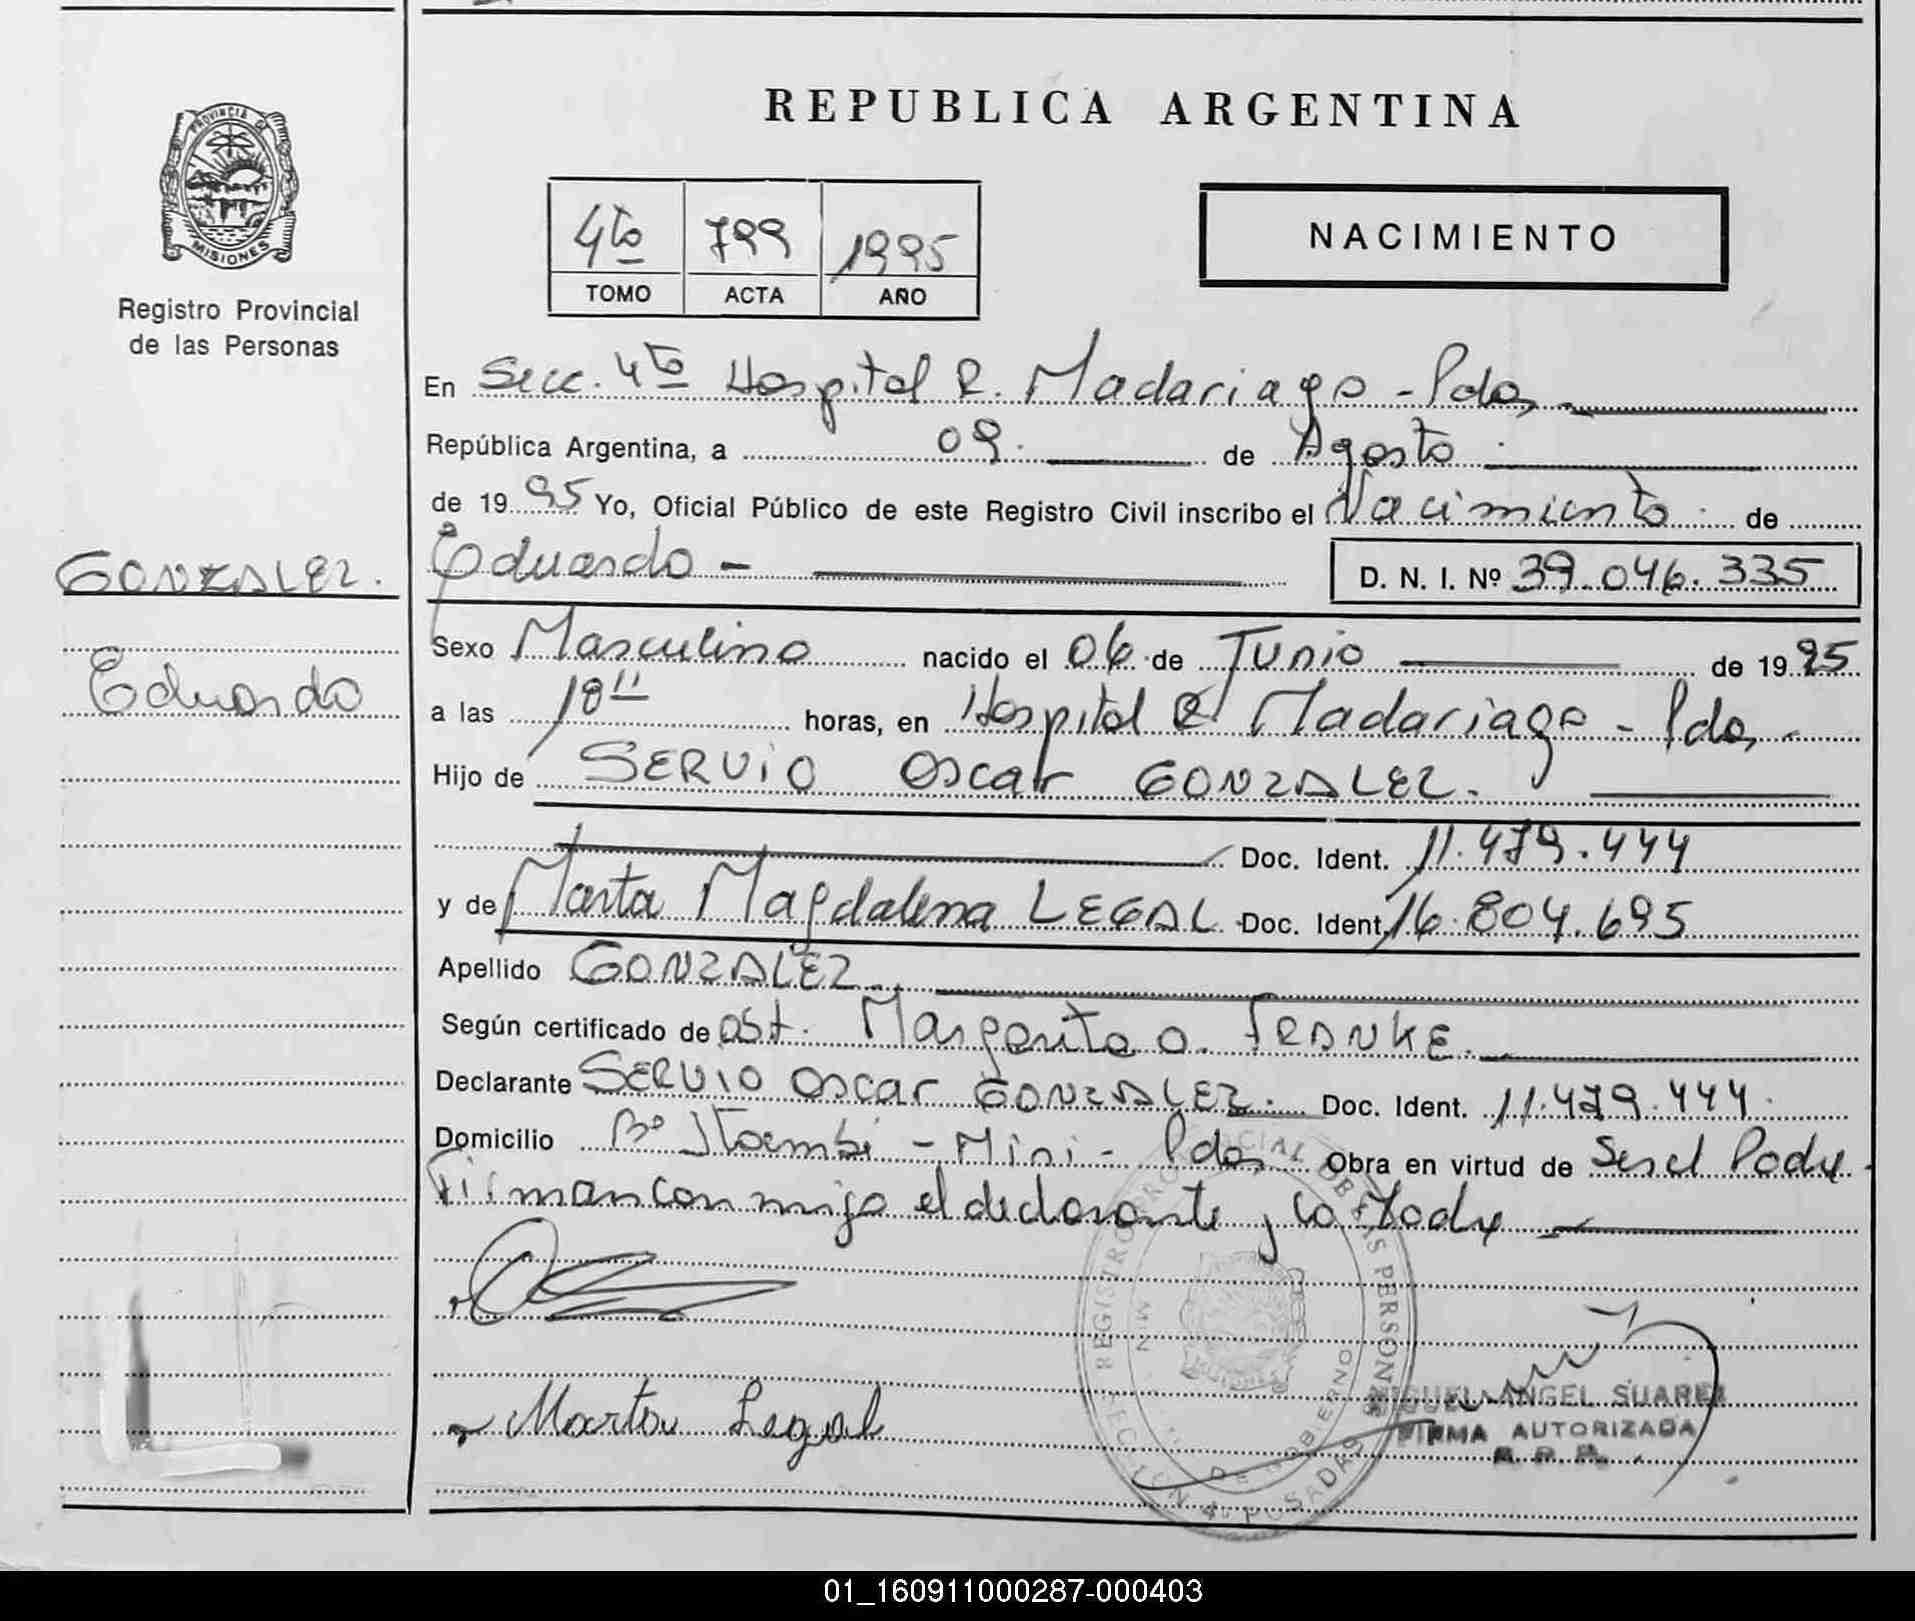 PROVINCIA DE
MISIONES
Registro Provincial
de las Personas
GONZALEZ.
Eduardo
REPUBLICA ARGENTINA
4to 799 1995
TOMO ACTA AÑO
NACIMIENTO
En Secc. 4to Hospital R. Madariaga - Pdas
República Argentina, a 09. de Agosto
de 1995 Yo, Oficial Público de este Registro Civil inscribo el Nacimiento de
Eduardo - D. N. I. Nº 39.046.335
Sexo Masculino nacido el 06 de Junio de 1995
a las horas, en Hospital R Madariaga - Pdas -
Hijo de SERVIO Oscar GONZALEZ.
Doc. Ident. 11.479.444
y de Marta Magdalena LEGAL Doc. Ident. 16.804.695
Apellido GONZALEZ
Según certificado de obst. Margarita O. FRANKE.
Declarante SERVIO Oscar GONZALEZ. Doc. Ident. 11.479.444.
Domicilio Bº Itaembi - Mini - Pdas Obra en virtud de Ser el Padre.
Firman conmigo el declarante y la Madre
Marta Legal
MIGUEL ANGEL SUAREZ
FIRMA AUTORIZADA
R. P. P.
01_160911000287-000403